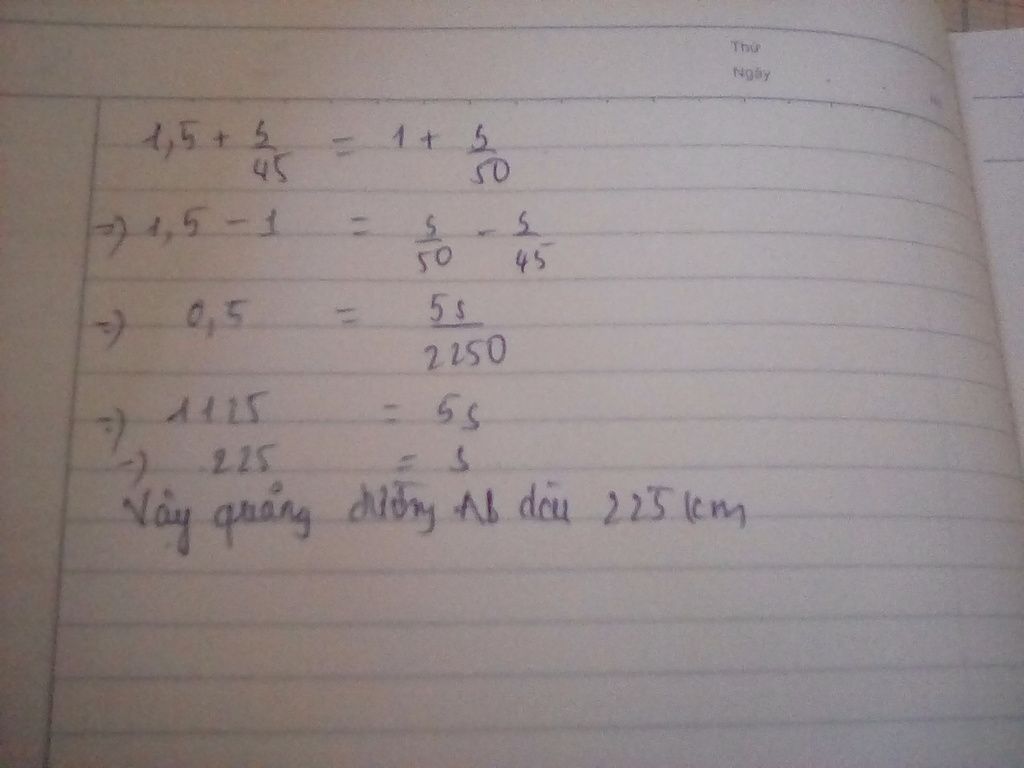 Thứ
Ngày
1,5 + s/45 = 1 + s/50
=) 1,5 - 1 = s/50 - s/45
=) 0,5 = 5s/2250
=) 1125 = 5s
=) 225 = s
Vậy quảng đường Ab dài 225 km